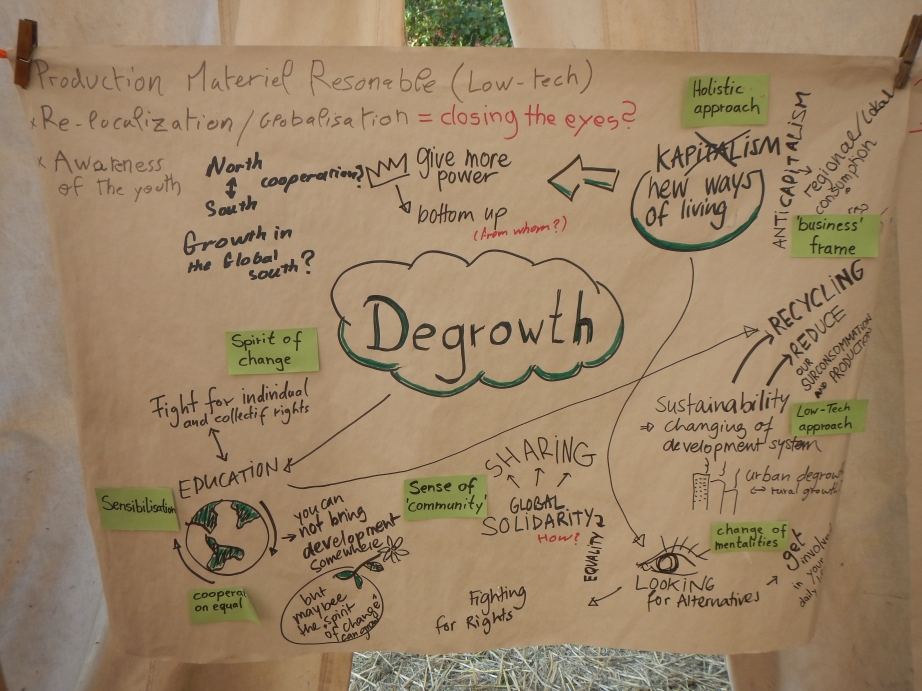 Production Materiel Resonable (Low-tech)
x Re-localization / Globalisation = closing the eyes?
x Awareness
of the youth
North
South
cooperation?
Growth in
the Global
south?
give more
power
bottom up
(from whom?)
Holistic
approach
KAPITALISM
new ways
of living
ANTICAPITALISM
regional/Lokal
consumption
'business'
frame
Degrowth
Spirit of
change
Fight for individual
and collectif rights
EDUCATION
Sensibilisation
cooperat
on equal
you can
not bring
development
somewhere
but
maybee
the "spirit
of change"
can grow!
Sense of
'community'
SHARING
GLOBAL
SOLIDARITY
HOW?
EQUALITY
Fighting
for Rights
RECYCLING
REDUCE
OUR
SURCONSOMMATION
AND PRODUCTION
Sustainability
⇒ changing of
development system
Low-Tech
approach
urban degrow
↔ rural growth
change of
mentalities
LOOKING
for Alternatives
get
involve
in your
daily